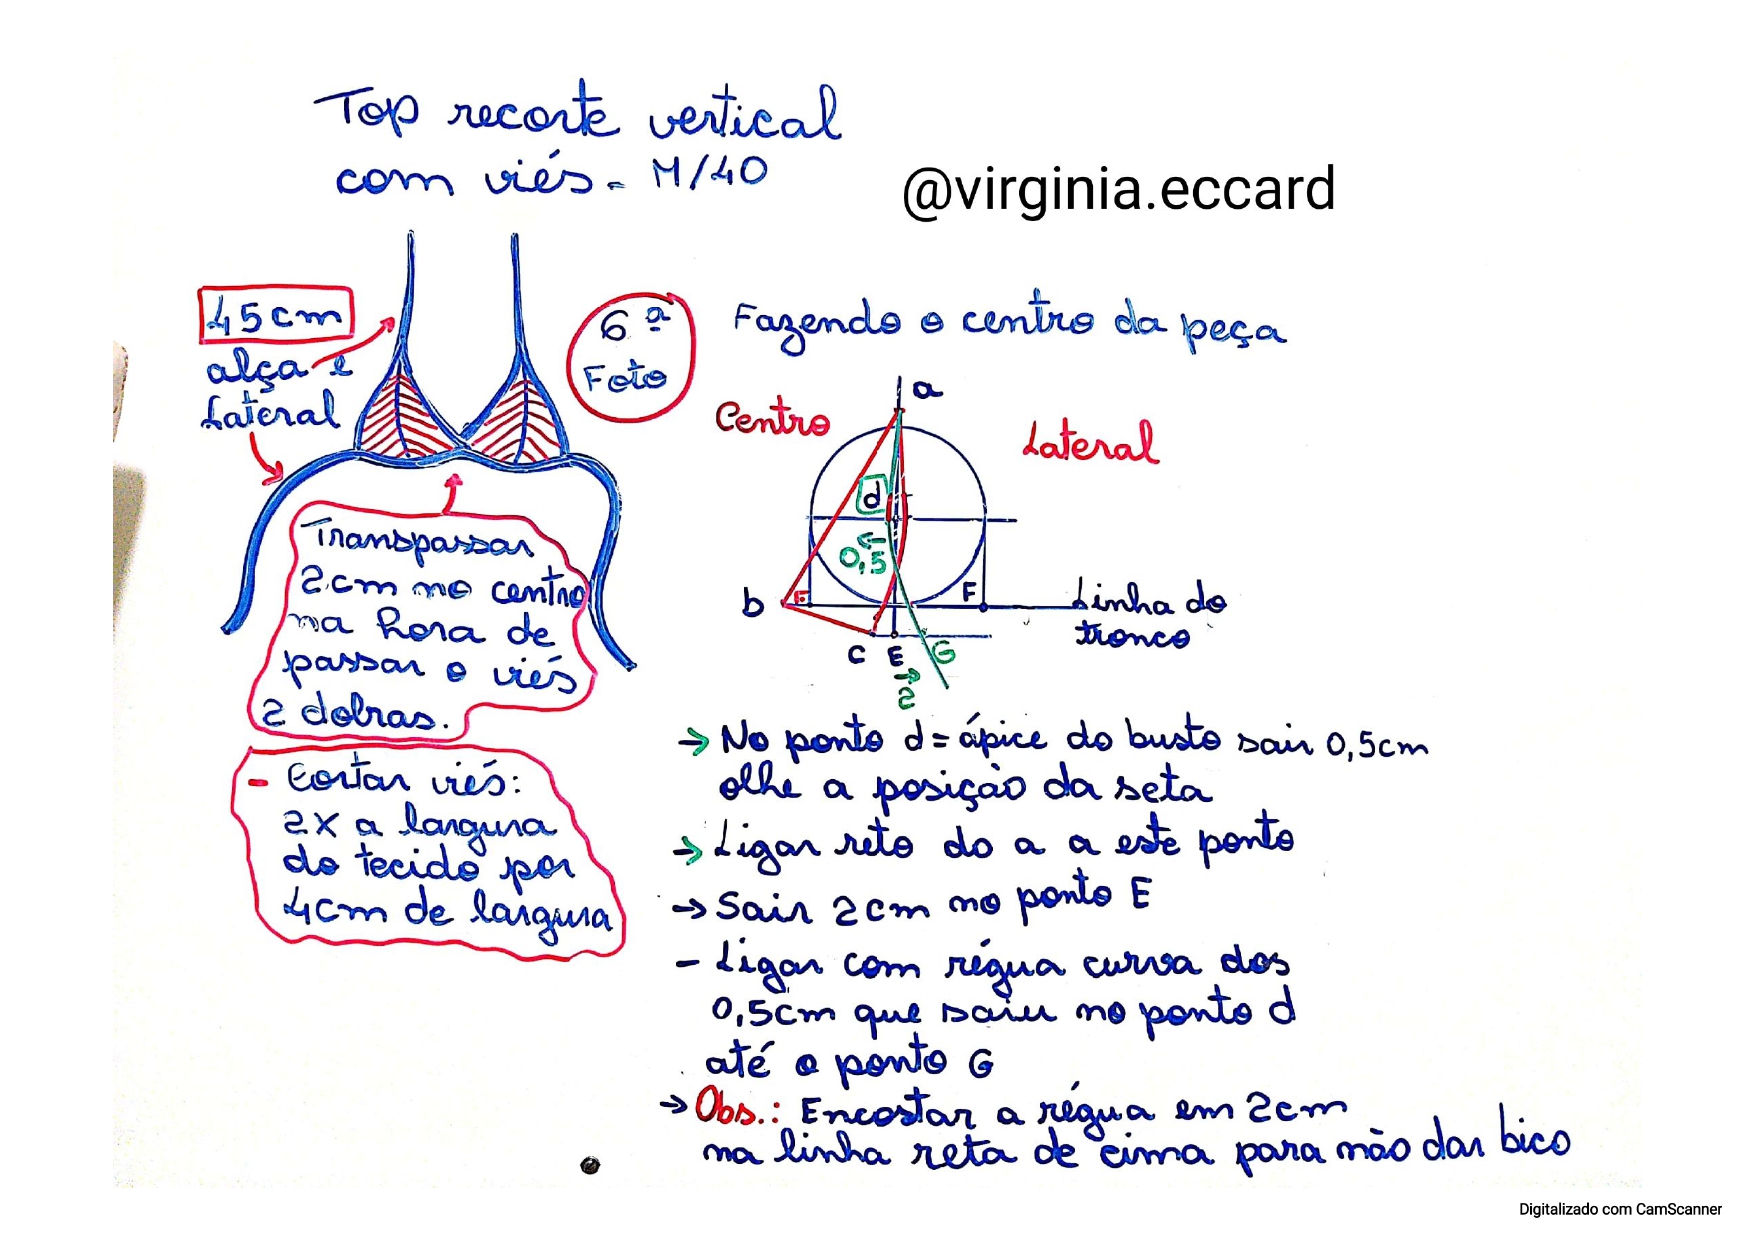 Top recorte vertical
com viés - M/40
@virginia.eccard
45cm
alça e
Lateral
6ª
Foto
Transpassar
2cm no centro
na hora de
passar o viés
2 dobras.
- Cortar viés:
2x a largura
do tecido por
4cm de largura
Fazendo o centro da peça
a
Centro
Lateral
d
0,5
b
F
F
Linha do
tronco
C
E
G
2
→ No ponto d = ápice do busto sair 0,5cm
olhe a posição da seta
→ Ligar reto do a a este ponto
→ Sair 2cm no ponto E
- Ligar com régua curva dos
0,5cm que saiu no ponto d
até o ponto G
→ Obs.: Encostar a régua em 2cm
na linha reta de cima para não dar bico
Digitalizado com CamScanner